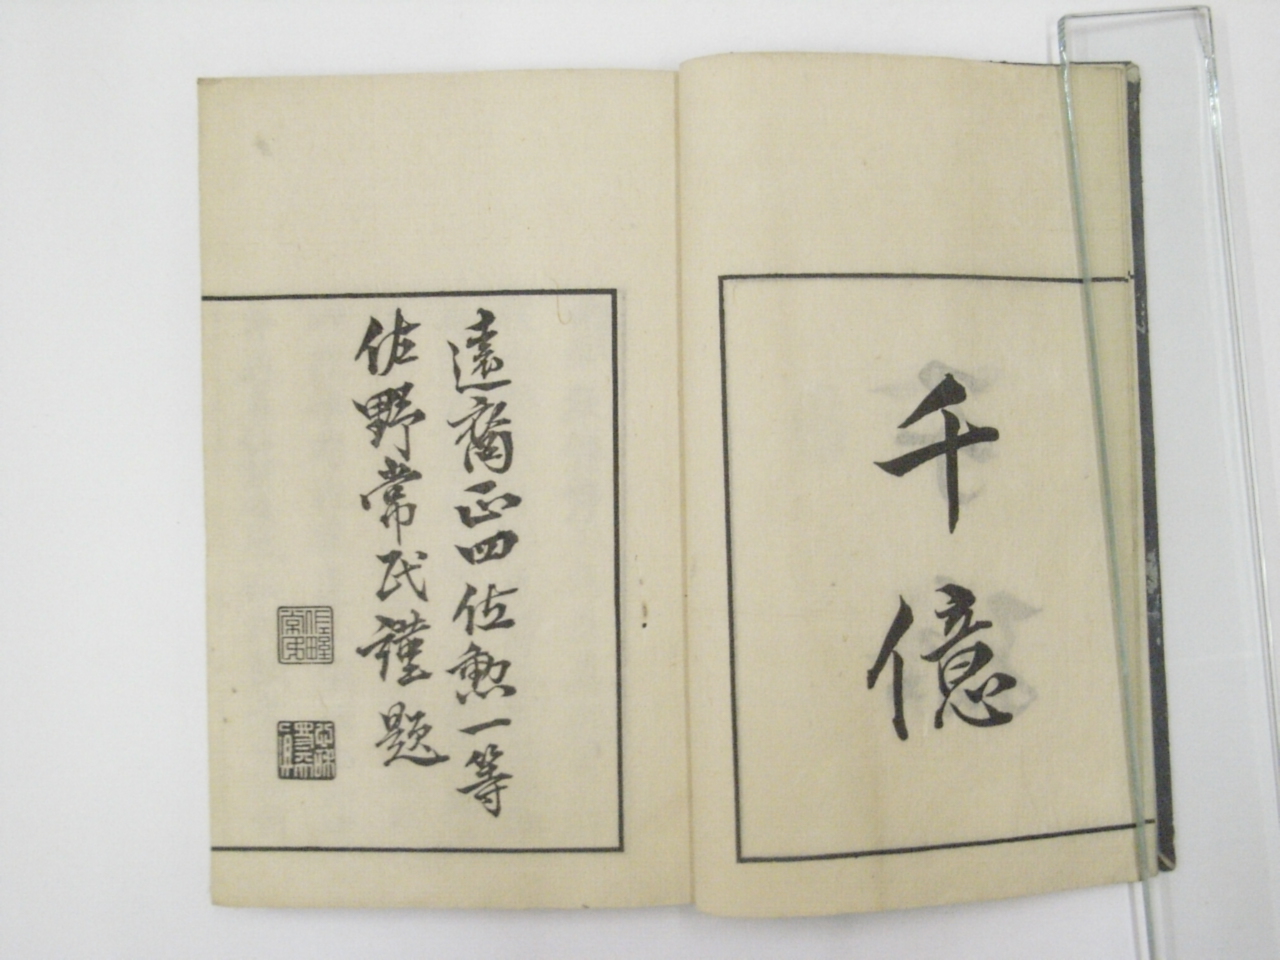 千億
遠裔正四位勲一等
佐野常民謹題